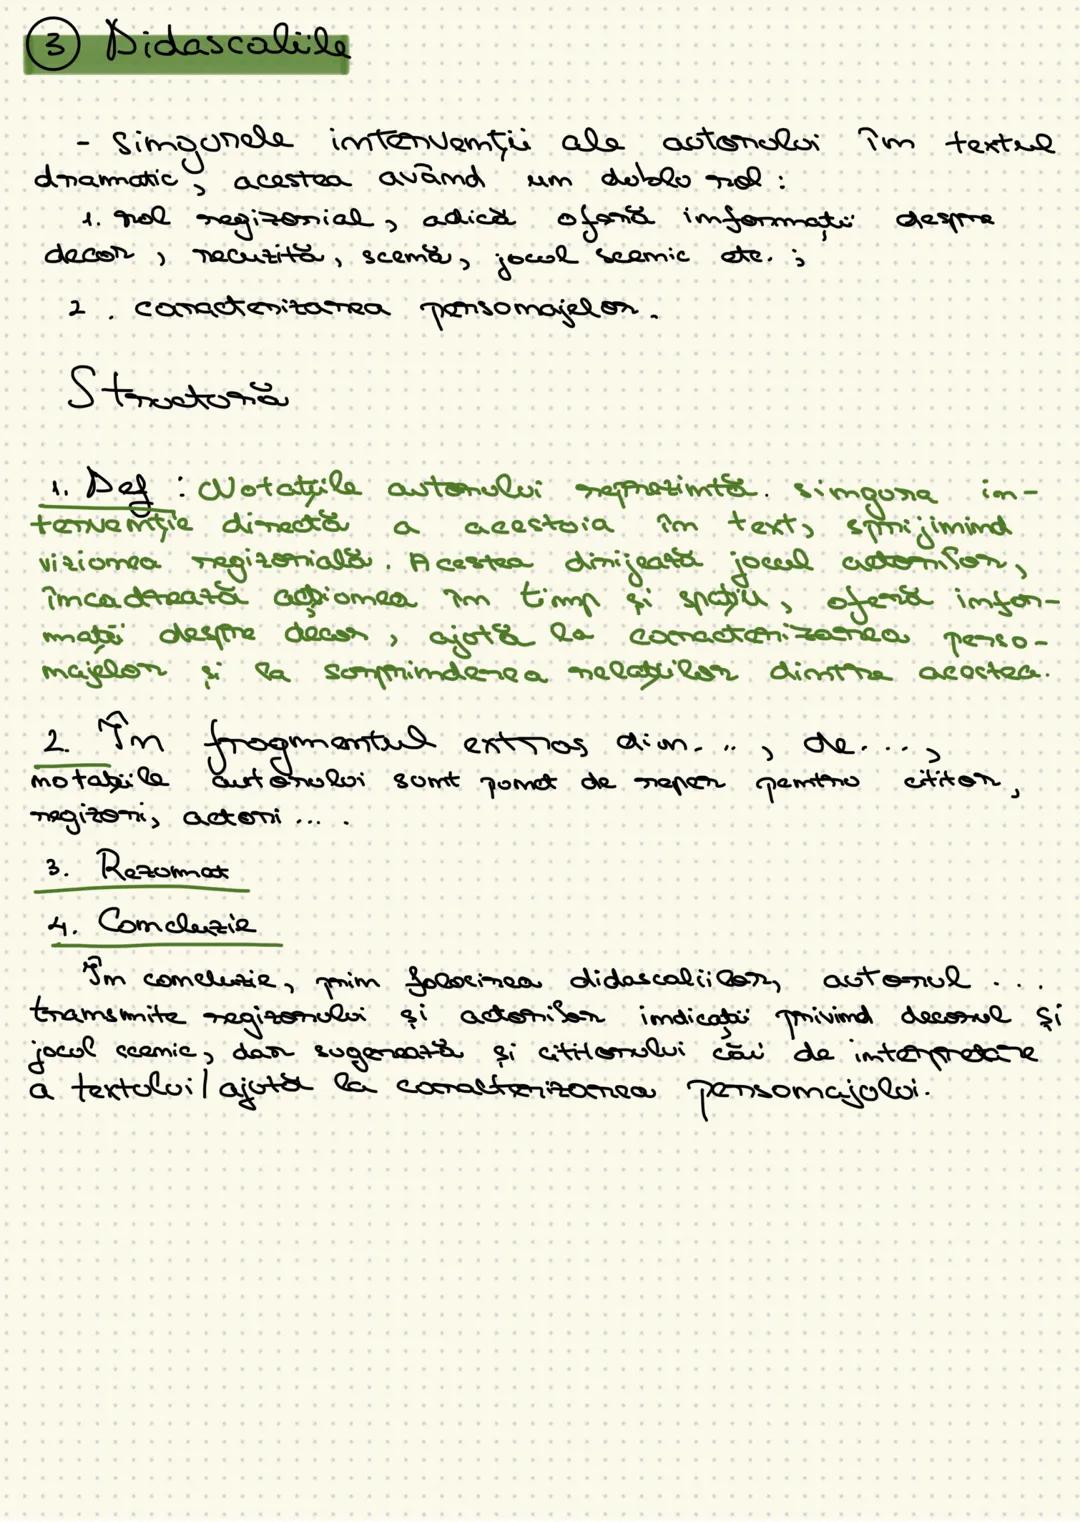 3 Didascaliile
- singurele intervenții ale autorului în textul
dramatic, acestea având un dublu rol:
1. rol regizorial, adică oferă informații despre
decor, recuzită, scenă, jocul scenic etc. ;
2. caracterizarea personajelor.
Structură
1. Def : Notațiile autorului reprezintă singura in-
tervenție directă a acestuia în text, sprijinind
viziunea regizorială. Acestea dirijează jocul actorilor,
încadrează acțiunea în timp și spațiu, oferă infor-
mații despre decor, ajută la caracterizarea perso-
najelor și la surprinderea relațiilor dintre acestea.
2. În fragmentul extras din..., de...,
notațiile autorului sunt punct de reper pentru cititor,
regizori, actori ... .
3. Rezumat
4. Concluzie
În concluzie, prin folosirea didascaliilor, autorul ...
transmite regizorului și actorilor indicații privind decorul și
jocul scenic, dar sugerează și cititorului căi de interpretare
a textului/ajută la caracterizarea personajului.